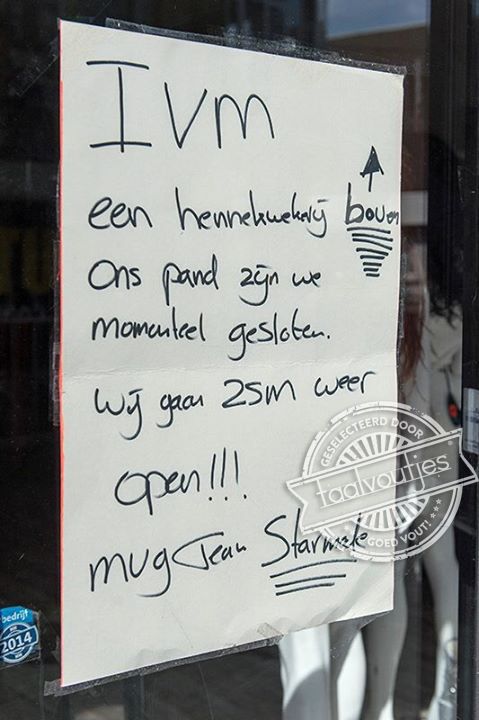 IVM
een hennekwekerij boven
Ons pand zijn we
momenteel gesloten.
Wij gaan ZSM weer
open!!!
mvg Team Starmate
GESELECTEERD DOOR
taalvoutjes
GOED VOUT!
bedrijf
2014